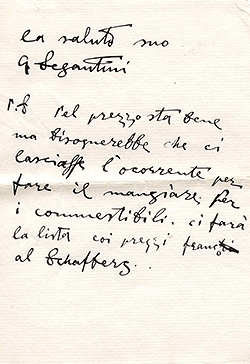 la saluto suo
G Segantini
P.S Pel prezzo sta bene
ma bisognerebbe che ci
lasciasse l'ocorrente per
fare il mangiare. Per
i commestibili. ci farà
la lista coi prezzi
al Schafberg.